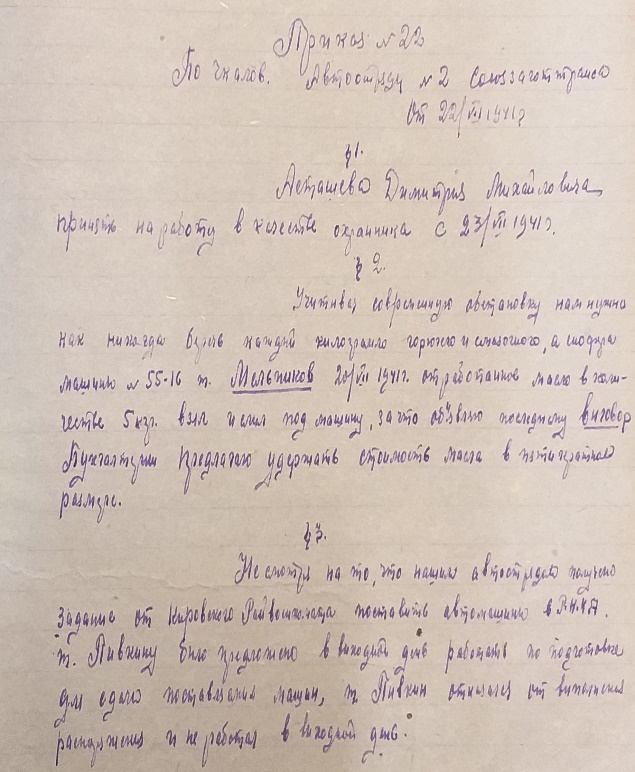 Приказ № 22
По Чкалов. Автоотряду № 2 Союззаготтранса
От 22/VII 1941 г
§ 1.
Асташева Димитрия Михайловича
принять на работу в качестве охранника с 23/VII 1941 г.
§ 2.
Учитывая современную обстановку нам нужно
как никогда беречь каждый килограмм горючего и смазочного, а шофера
машины № 55-16 т. Мельников 20/VII 1941 г. отработанное масло в коли-
честве 5 кгр. взял и слил под машину, за что объявляю последнему выговор
Бухгалтерии предлагаю удержать стоимость масла в пятикратном
размере.
§ 3.
Несмотря на то, что нашим автоотрядом получено
задание от Кировского Райвоенкомата поставить автомашины в Р.К.К.А.
т. Пивкину было предложено в выходной день работать по подготовке
для сдачи поставления машин, т. Пивкин отказался от выполнения
распоряжения и не работал в выходной день.